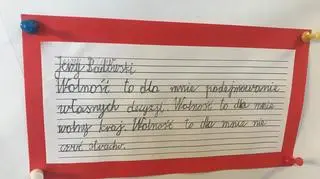 Jerzy Radowski
Wolność to dla mnie podejmowanie
własnych decyzji. Wolność to dla mnie
wolny kraj. Wolność to dla mnie nie
czuć strachu.